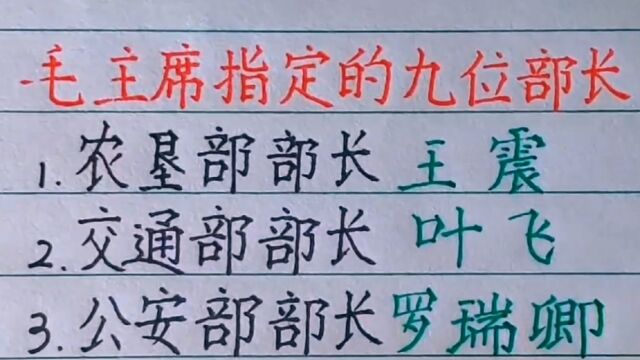 毛主席指定的九位部长
1.农垦部部长 王震
2.交通部部长 叶飞
3.公安部部长 罗瑞卿